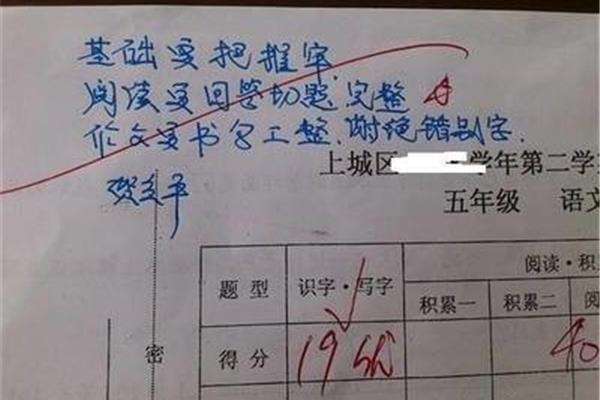 基础要把握牢,
阅读要回答切题,完整
作文要书写工整,谢绝错别字.
上城区 学年第二学
五年级 语文
题 型 识字·写字 阅读·积
积累一 积累二 阅
得 分 19 40
密